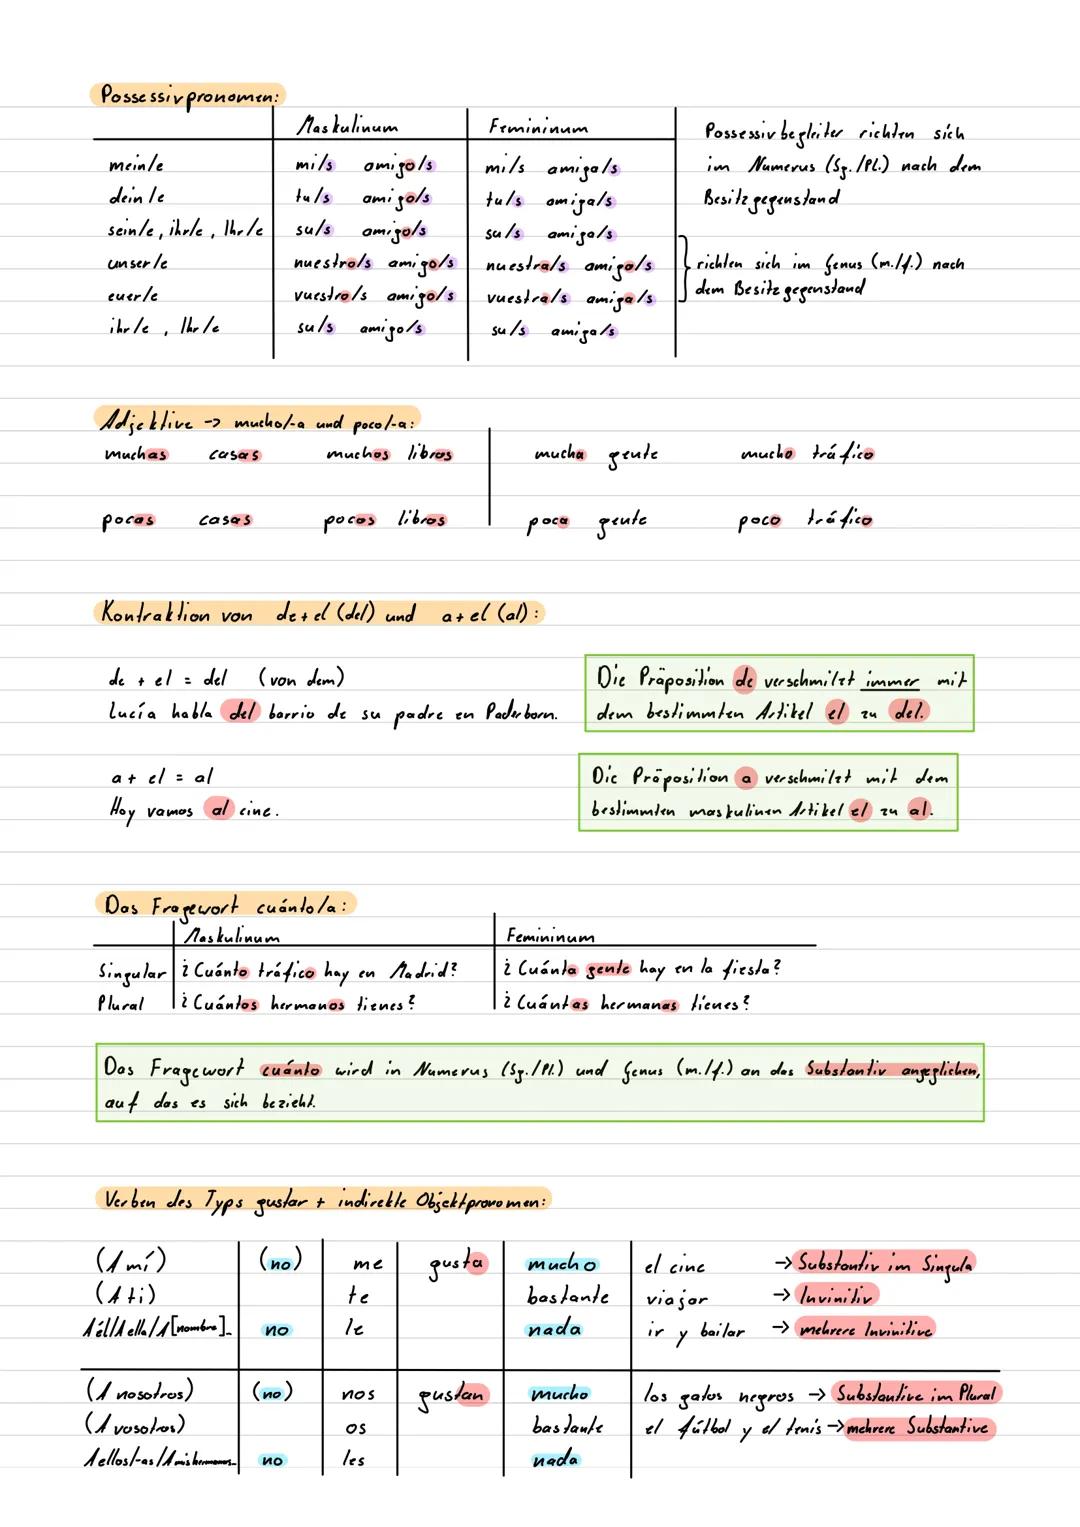 Possessivpronomen:
Maskulinum Femininum
mein/e mi/s amigo/s mi/s amiga/s
dein/e tu/s amigo/s tu/s amiga/s
sein/e, ihr/e, Ihr/e su/s amigo/s su/s amiga/s
unser/e nuestro/s amigo/s nuestra/s amiga/s
euer/e vuestro/s amigo/s vuestra/s amiga/s
ihr/e, Ihr/e su/s amigo/s su/s amiga/s
Possessivbegleiter richten sich
im Numerus (Sg./Pl.) nach dem
Besitzgegenstand
richten sich im Genus (m./f.) nach
dem Besitzgegenstand
Adjektive -> mucho/-a und poco/-a:
muchas casas muchos libros mucha gente mucho tráfico
pocas casas pocos libros poca gente poco tráfico
Kontraktion von de+el (del) und a+el (al):
de + el = del (von dem)
Lucía habla del barrio de su padre en Paderborn.
Die Präposition de verschmilzt immer mit
dem bestimmten Artikel el zu del.
a + el = al
Hoy vamos al cine.
Die Präposition a verschmilzt mit dem
bestimmten maskulinen Artikel el zu al.
Das Fragewort cuánto/a:
Maskulinum Femininum
Singular ¿Cuánto tráfico hay en Madrid? ¿Cuánta gente hay en la fiesta?
Plural ¿Cuántos hermanos tienes? ¿Cuántas hermanas tienes?
Das Fragewort cuánto wird in Numerus (Sg./Pl.) und Genus (m./f.) an das Substantiv angeglichen,
auf das es sich bezieht.
Verben des Typs gustar + indirekte Objektpronomen:
(A mí) (no) me gusta mucho el cine -> Substantiv im Singula
(A ti) te bastante viajar -> Invinitiv
A él/A ella/A [nombre] no le nada ir y bailar -> mehrere Invinitive
(A nosotros) (no) nos gustan mucho los gatos negros -> Substantive im Plural
(A vosotros) os bastante el fútbol y el tenis -> mehrere Substantive
A ellos/-as/A mis hermanos no les nada